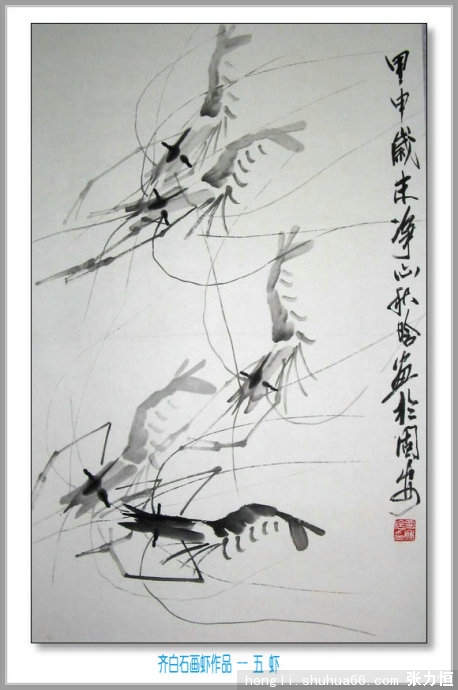 甲申歲末净心秋晗畫於固安
齐白石画虾作品 -- 五 虾
hengli.shuhua66.com 张力恒